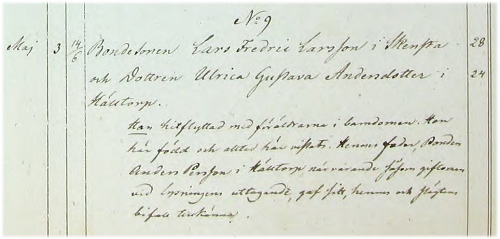 No 9
Maj 3 14/6 Bondesonen Lars Fredric Larsson i Skensta 28
och Dottren Ulrica Gustava Andersdotter i 24
Hälltorp.
Han hitflyttad med föräldrarna i barndomen. Hon
här född och alltid här vistats. Hennes fader, Bonden
Anders Persson i Hälltorp närvarande såsom giftoman
vid Lysningens uttagande, gaf sitt, hennes och slägtens
bifall tillkänna.